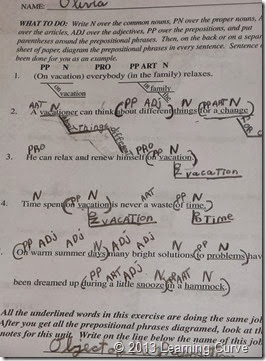 NAME: Olivia
WHAT TO DO: Write N over the common nouns, PN over the proper nouns, A
over the articles, ADJ over the adjectives, PP over the prepositions, and put
parentheses around the prepositional phrases. Then, on the back or on a separ
sheet of paper, diagram the prepositional phrases in every sentence. Sentence
been done for you as an example.
PP N PRO PP ART N
1. (On vacation) everybody (in the family) relaxes.
On vacation in family the
ART N PP ADJ N PP ART N
2. A vacationer can think (about different things) (for a change)
about things different for change a
PRO PRO PP N
3. He can relax and renew himself (on vacation).
on vacation
N PP N ART N PP N
4. Time spent (on vacation) is never a waste (of time.)
on vacation of time
PP ADJ ADJ N ADJ ADJ N PP N
(On warm summer days) many bright solutions (to problems) have
PP ART ADJ N PP ART N
been dreamed up (during a little snooze) (in a hammock).
All the underlined words in this exercise are doing the same jo
After you get all the prepositional phrases diagramed, look at th
notes for this unit. Write on the line below the name of this jo
Object
© 2013 Learning Curve